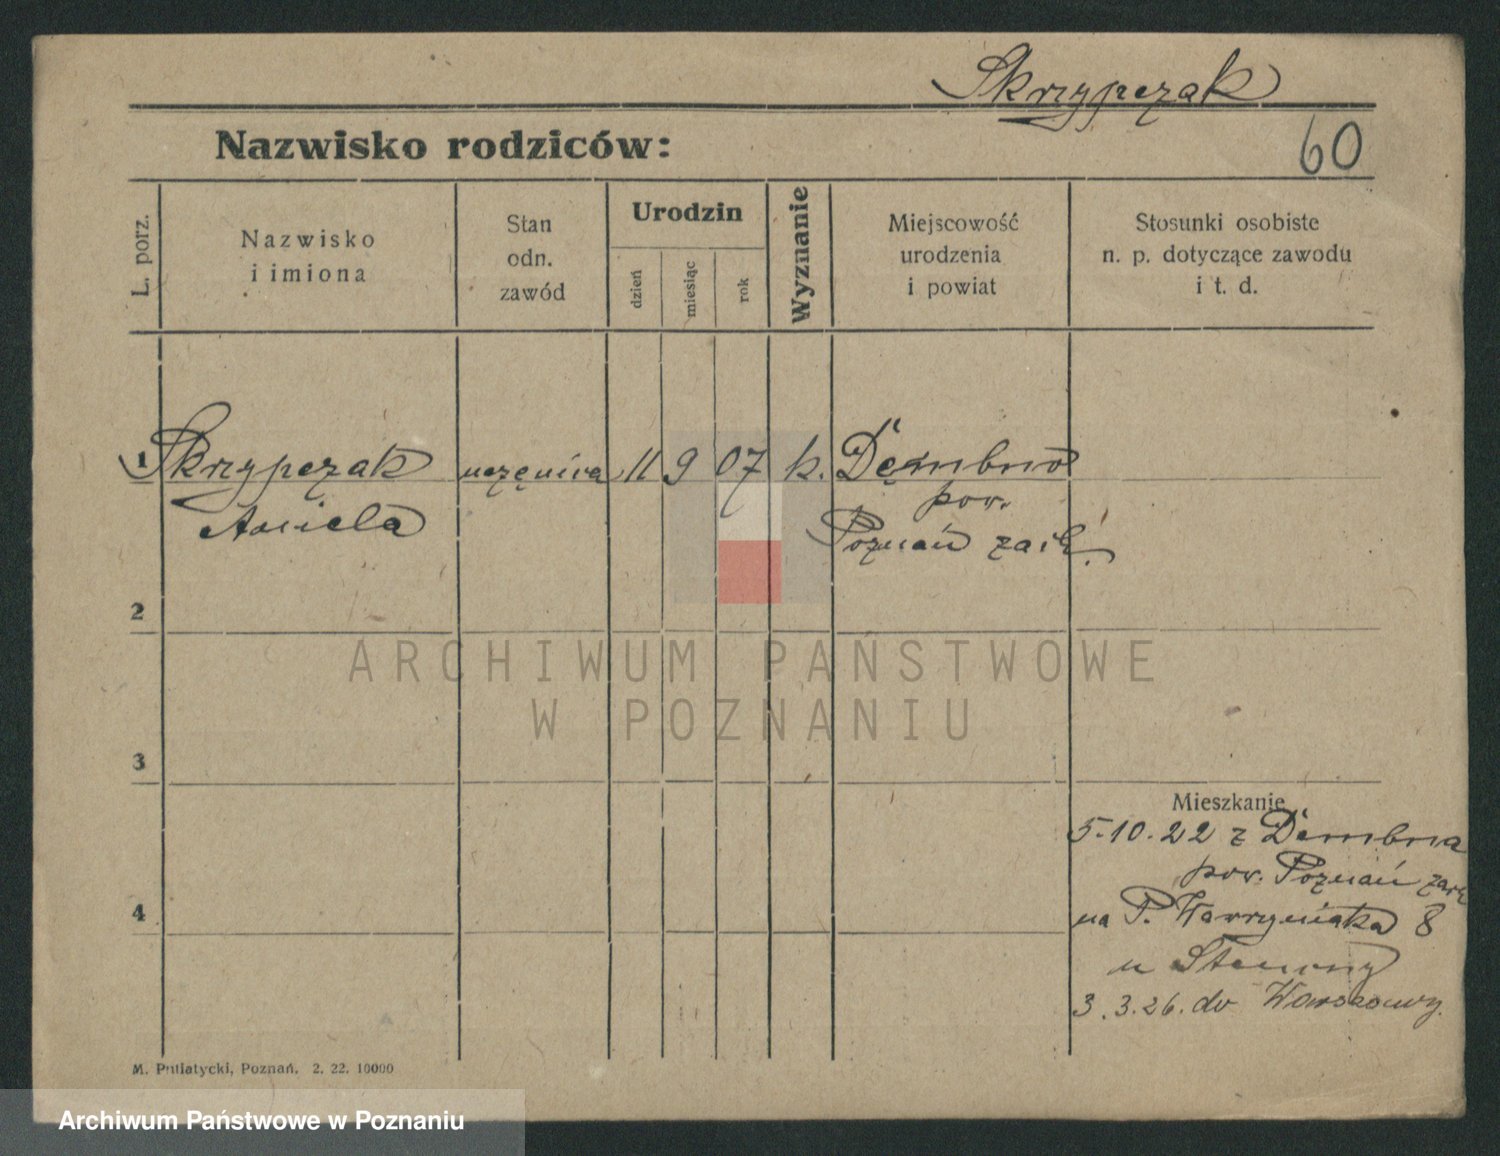 Skrzypczak
60
Nazwisko rodziców:
L. porz.
Nazwisko
i imiona
Stan
odn.
zawód
Urodzin
dzień
miesiąc
rok
Wyznanie
Miejscowość
urodzenia
i powiat
Stosunki osobiste
n. p. dotyczące zawodu
i t. d.
1 Skrzypczak uczęnica 11 9 07 k. Dembno
pow.
Aniela
Poznań zach.
2
ARCHIWUM PAŃSTWOWE
W POZNANIU
3
Mieszkanie
5.10.22 z Dembna
pow. Poznań zach
4
na P. Wawrzyniaka 8
u
3.3.26. do Warszawy.
M. Putiatycki, Poznań. 2. 22. 10000
Archiwum Państwowe w Poznaniu